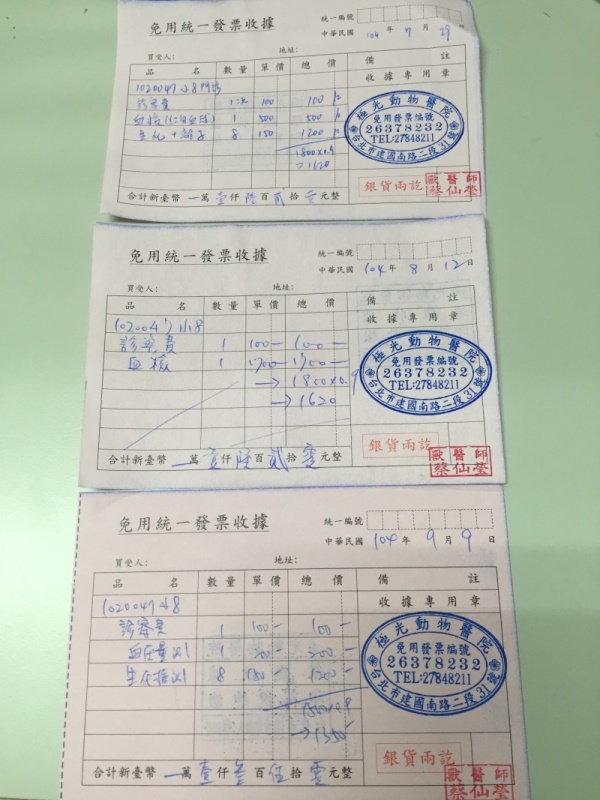 免用統一發票收據
統一編號
中華民國 104 年 7 月 29 日
買受人: 地址:
品 名 數量 單價 總價 備 註
1020047 小8
收據專用章
診察費 1 100 100
血檢 1 500 500
8 150 1200
1800x0.9
→1620
極光動物醫院
免用發票編號
26378232
TEL:27848211
台北市建國南路二段31號
銀貨兩訖
歐醫師
蔡仙瑩
合計新臺幣 萬 壹 仟 陸 百 貳 拾 零 元整
免用統一發票收據
統一編號
中華民國 104 年 8 月 12 日
買受人: 地址:
品 名 數量 單價 總價 備 註
1020047 小8
收據專用章
診察費 1 100- 100-
血檢 1 1700- 1700-
→ 1800x0.9
→1620
極光動物醫院
免用發票編號
26378232
TEL:27848211
台北市建國南路二段31號
銀貨兩訖
歐醫師
蔡仙瑩
合計新臺幣 萬 壹 仟 陸 百 貳 拾 零 元整
免用統一發票收據
統一編號
中華民國 104 年 9 月 9 日
買受人: 地址:
品 名 數量 單價 總價 備 註
1020047 小8
收據專用章
診察費 1 100- 100-
1 200- 200-
8 150- 1200-
1500x0.9
→1350-
極光動物醫院
免用發票編號
26378232
TEL:27848211
台北市建國南路二段31號
銀貨兩訖
歐醫師
蔡仙瑩
合計新臺幣 萬 壹 仟 叁 百 伍 拾 零 元整